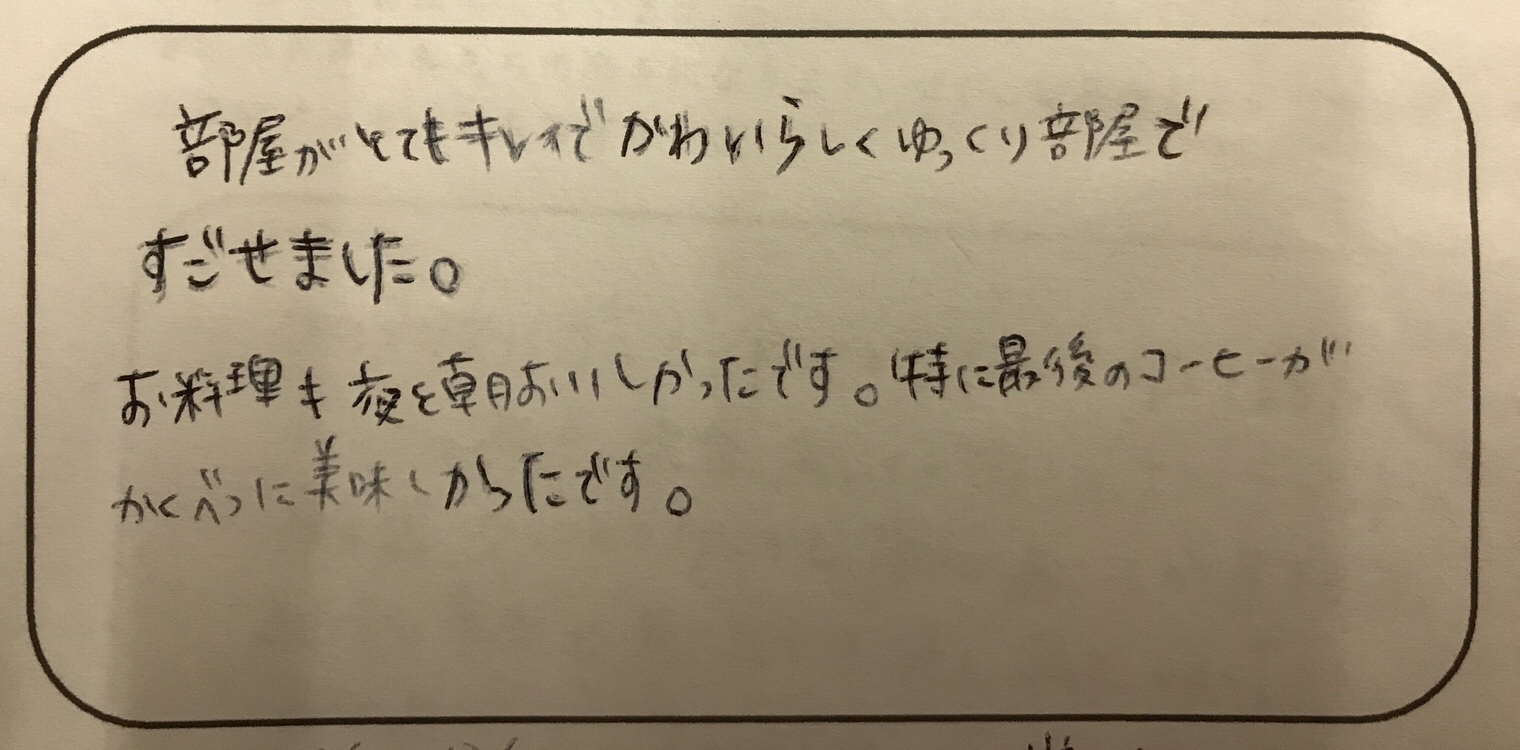 部屋がとてもキレイでかわいらしくゆっくり部屋で
すごせました。
お料理も夜と朝おいしかったです。特に最後のコーヒーが
かくべつに美味しかったです。